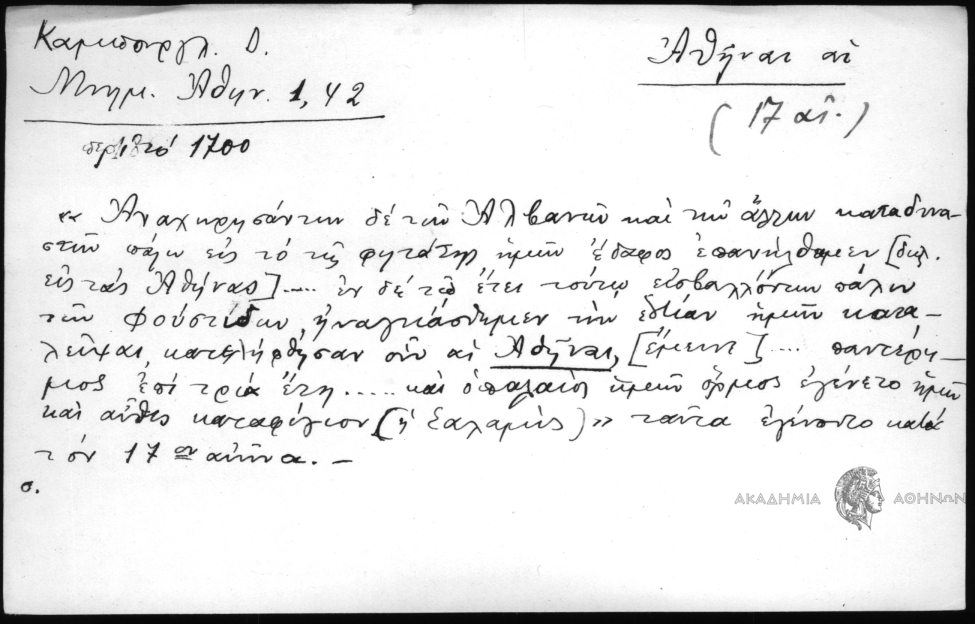 Καμπουργλ. Δ.
Μνημ. Ἀθην. 1, 42
περὶ τό 1700
Ἀθῆναι αἱ
(17 αἰ.)
« Ἀναχωρησάντων δέ τῶν Ἀλβανῶν καί τῶν ἄλλων καταδυνα-
στῶν πάλιν εἰς τό τῆς φιλτάτης ἡμῶν ἔδαφος ἐπανήλθομεν [δηλ.
εἰς τάς Ἀθήνας] .... ἐν δέ τῷ ἔτει τούτῳ εἰσβαλλόντων πάλιν
τῶν Φούστιδων, ἠναγκάσθημεν τήν ἑστίαν ἡμῶν κατα-
λεῖψαι, κατελήφθησαν οὖν αἱ Ἀθῆναι, [ἔμειναν] .... παντέρη-
μοι ἐπί τρία ἔτη ..... καί ὁ παλαιός ἡμῶν ὅρμος ἐγένετο ἡμῖν
καί αὖθις καταφύγιον (ἡ Σαλαμίς) » ταῦτα ἐγένοντο κατά
τόν 17ον αἰῶνα. –
σ.
ΑΚΑΔΗΜΙΑ ΑΘΗΝΩΝ